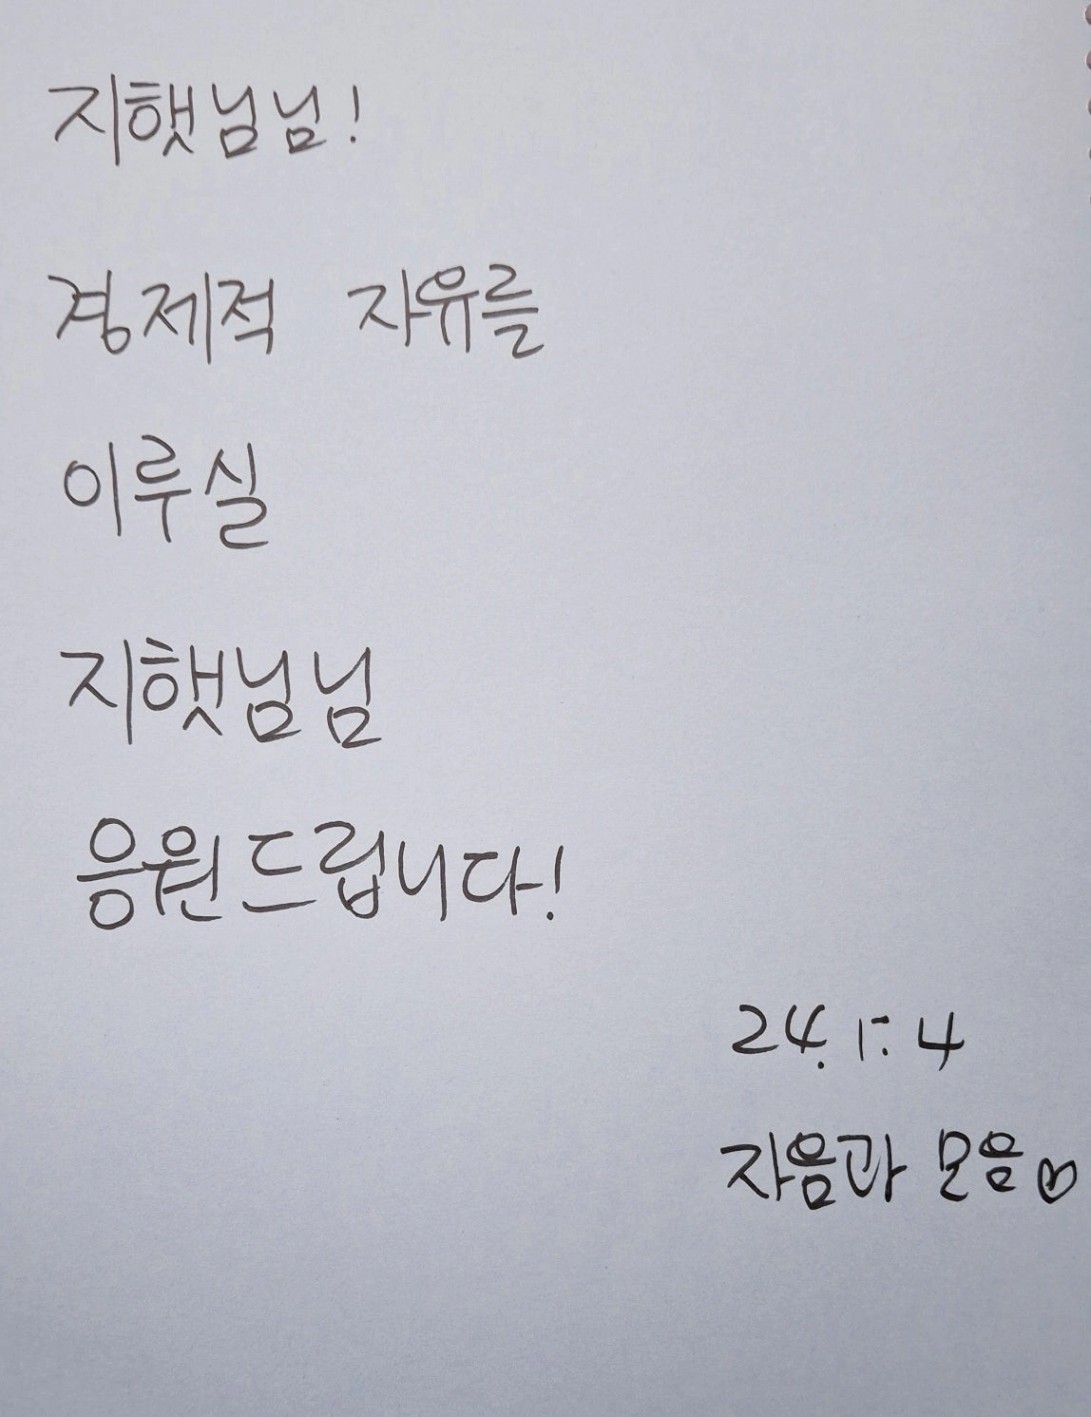 지햇님님!
경제적 자유를
이루실
지햇님님
응원드립니다!
24. 1. 4
자음과 모음♡